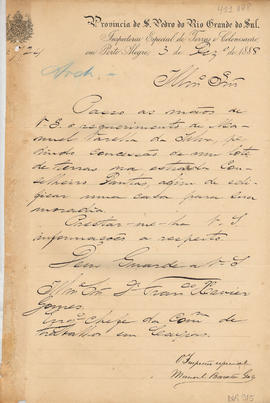 Provincia de S. Pedro do Rio Grande do Sul.
Inspetoria Especial de Terras e Colonisação
em Porto Alegre, 3 de Dezº de 1888
Illmº Snr
Passo as mãos de
V. S. o requerimento de Ma
noel da Silva, pe
dindo concessão de um lote
de terras na estrada Con
selheiro Dantas, afim de edi
ficar uma casa para sua
moradia.
Prestar-me-ha V. S.
informações a respeito.
Deus Guarde a V. S.
Illmº Snr Dr Franco Xavier
Gomes
Engº Chefe da Comm de
trabalhos em Caxias.
O Inspector especial
Manoel